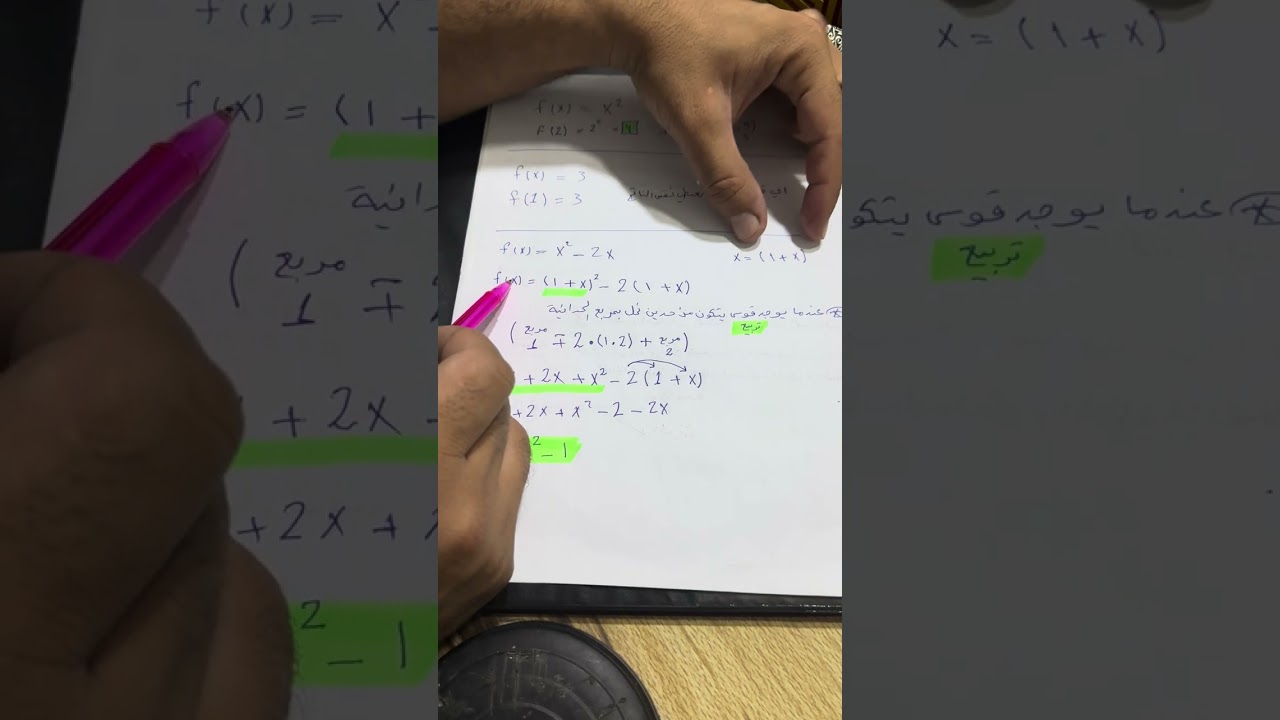 f(x) = x²
f(2) = 2² = 4
f(x) = 3
f(1) = 3
f(x) = x² - 2x
x = (1 + x)
f(x) = (1 + x)² - 2 (1 + x)
عندما يوجد قوس يتكون من حدين نحل بمربع الحدانية
تربيع
(مربع 1 ∓ 2 • (1.2) + مربع 2)
+ 2x + x² - 2 (1 + x)
+ 2x + x² - 2 - 2x
² - 1